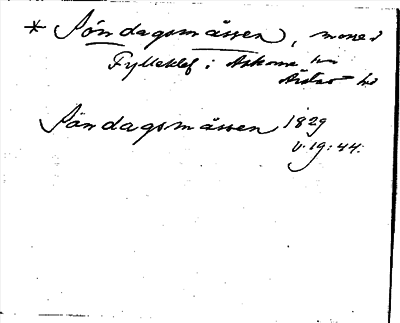 * Söndagsmässen, mosse i
Fylleklef i Askome hd
Årstad hd
Söndagsmässen 1829
V. 19:44.